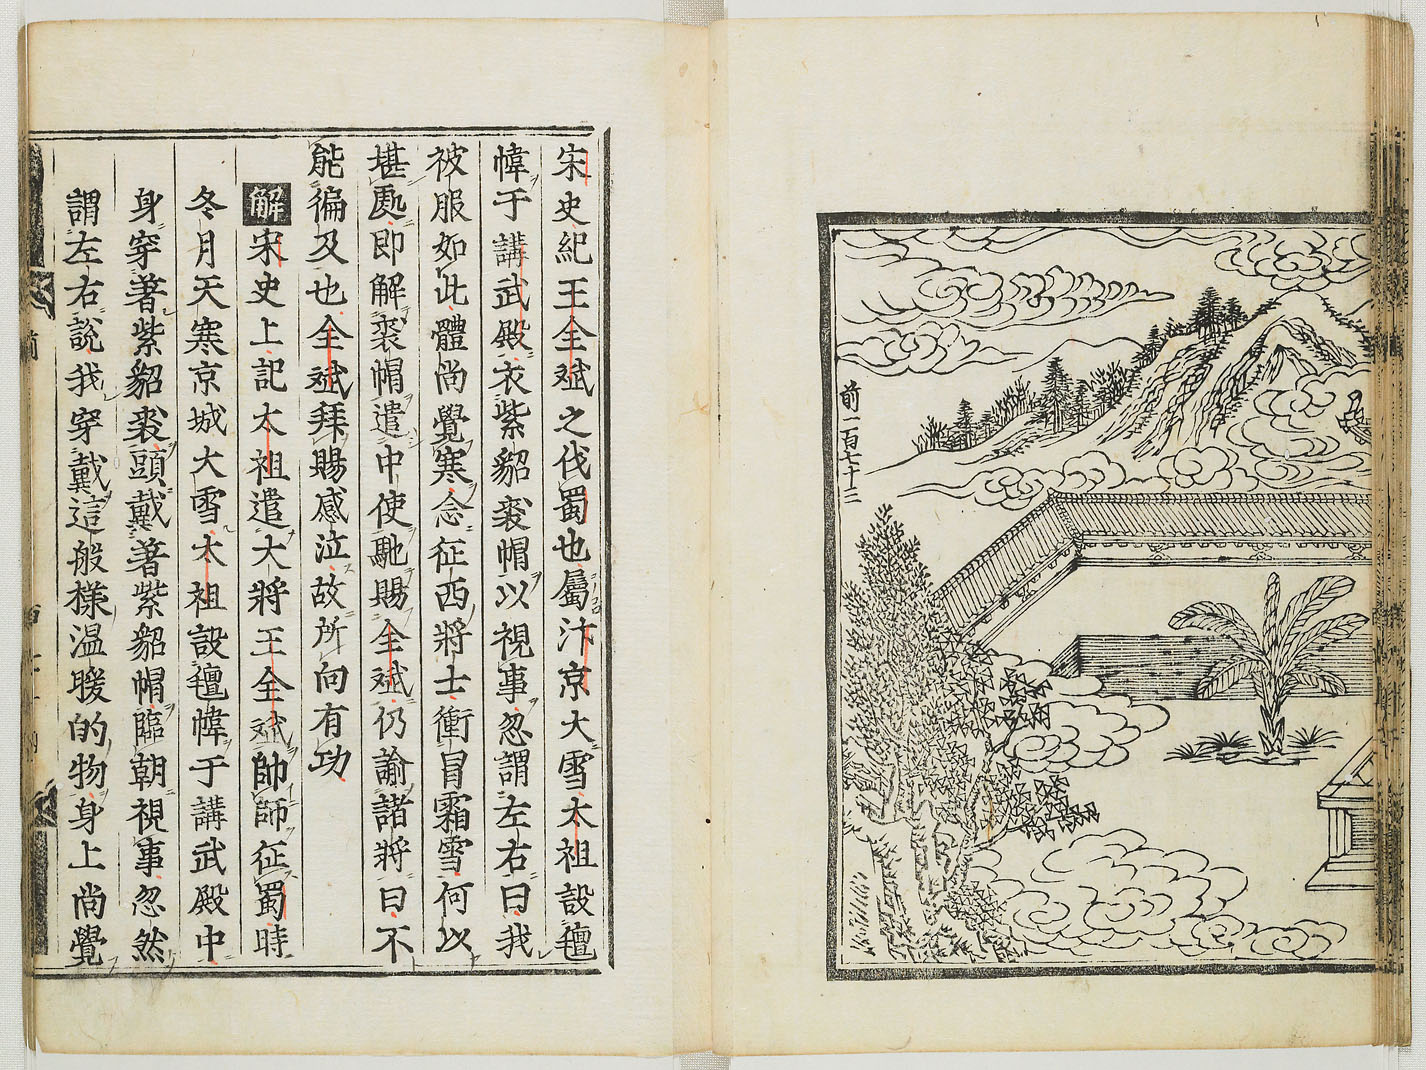 前一百七十三
宋史紀王全斌之伐蜀也屬汴京大雪太祖設氊
幃于講武殿衣紫貂裘帽以視事忽謂左右曰我
被服如此體尚覺寒念征西將士衝冒霜雪何以
堪處即解裘帽遣中使馳賜全斌仍諭諸將曰不
能徧及也全斌拜賜感泣故所向有功
解宋史上記太祖遣大將王全斌帥師征蜀時
冬月天寒京城大雪太祖設氊幃于講武殿中
身穿著紫貂裘頭戴著紫貂帽臨朝視事忽然
謂左右說我穿戴這般樣温暖的物身上尚覺